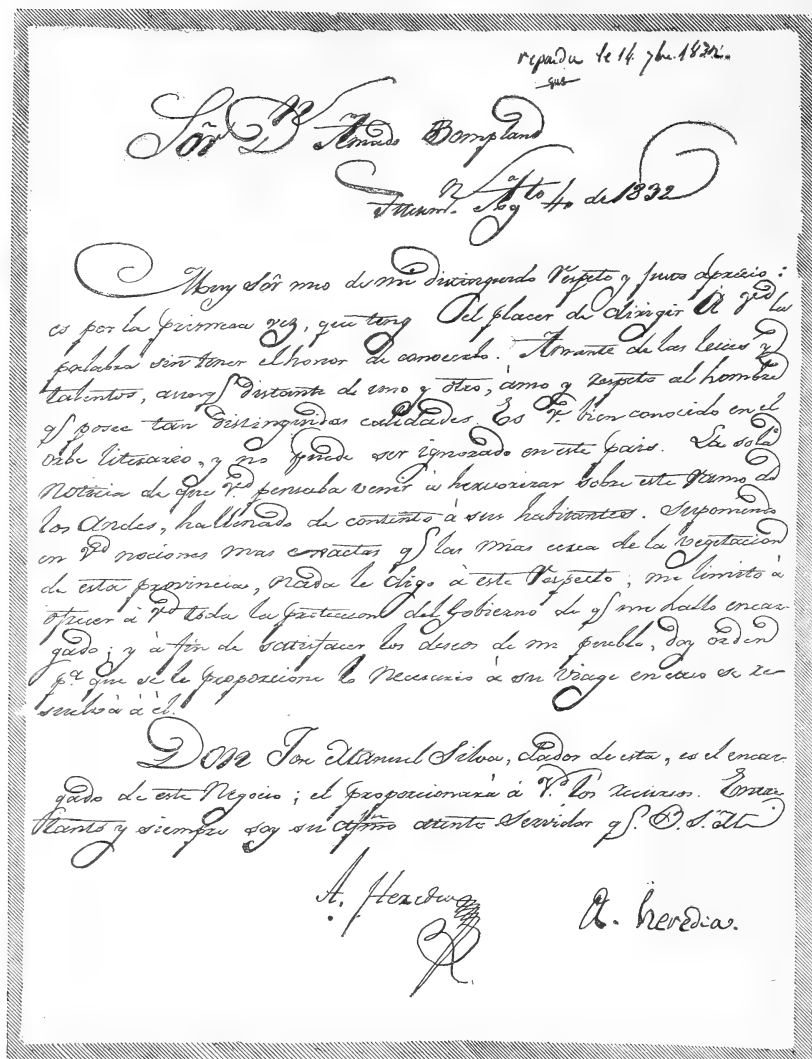 le 14. 7bre. 1832.
Sōr Dn Amado Bompland
Tucumn. Agto 4„ de 1832
Muy Sōr mio de mi distinguido respeto y justo aprecio:
es por la primera vez, que teng el placer de dirigir á Vd la
palabra sin tener el honor de conocerlo. Amante de las luces y
talentos, aunq distante de uno y otro, ámo y respeto al hombre
q posee tan distinguidas calidades. Es V. bien conocido en el
orbe literario, y no puede ser ignorado en este pais. La sola
noticia de que Vd pensaba venir á hervorizar sobre este ramo de
los Andes, ha llenado de contento à sus habitantes. Suponiendo
en Vd nociones mas exactas q las mias cerca de la vegetacion
de esta provincia, nada le digo à este respecto; me limito à
ofrecer á Vd toda la proteccion del Gobierno de q me hallo encar-
gado; y à fin de satisfacer los deseos de mi pueblo, doy orden
pa que se le proporcione lo necesario à su viage en caso se re-
suelva à èl.
Don Jose Manuel Silva, dador de esta, es el encar-
gado de este negocio; el proporcionará á Vd los recursos. Entre
tanto y siempre soy su afmo atento servidor q. B. S. M.
A. Heredia
A. heredia.